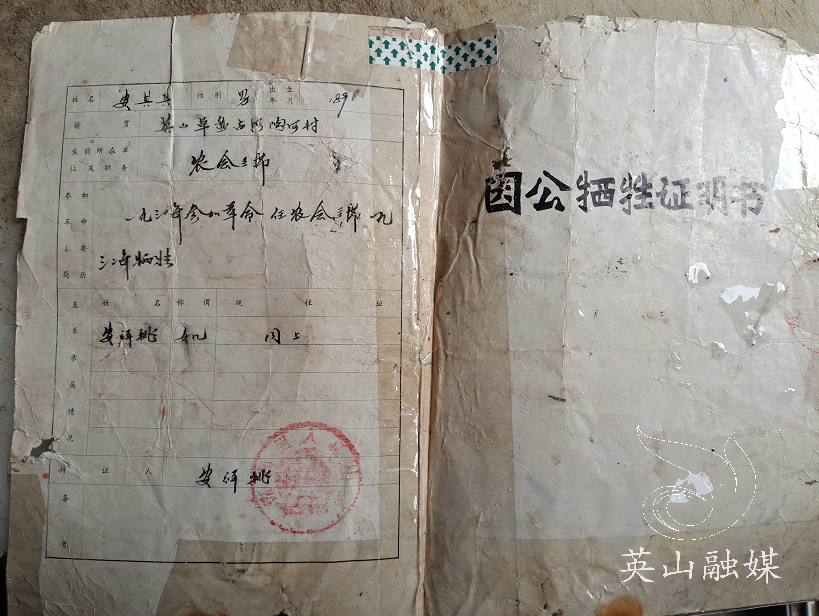 姓名 安其英 性别 男 出生年月 1896
籍贯 英山草盘占乡陶河村
生前所在单位及职务 农会主席
参加革命主要简历 一九三〇年参加革命任农会主席 一九
三二年牺牲
直系亲属情况 姓名 称谓 现住址
安祥桃 女儿 同上
持证人 安祥桃
备考
因公牺牲证明书
英山融媒